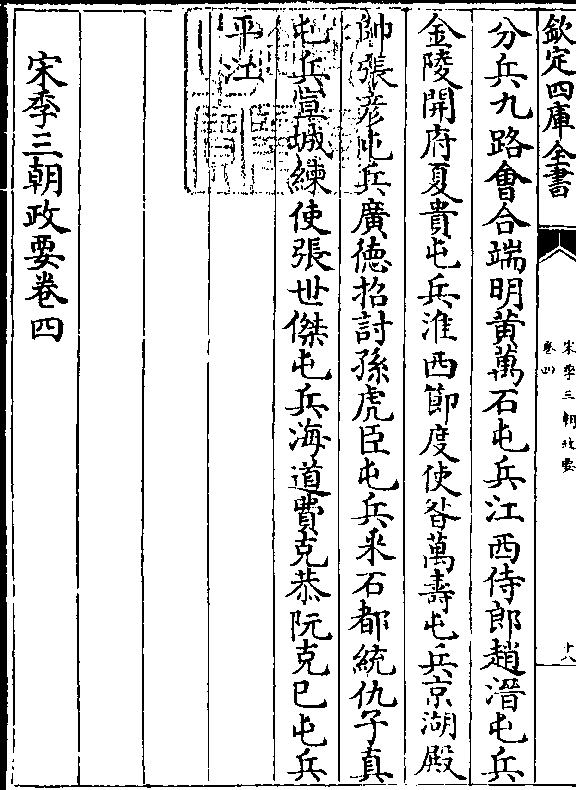 欽定四庫全書
宋季三朝政要
卷四
十八
分兵九路會合端明黄萬石屯兵江西侍郎趙溍屯兵
金陵開府夏貴屯兵淮西節度使昝萬壽屯兵京湖殿
帥張彦屯兵廣德招討孫虎臣屯兵采石都統仇子真
屯兵宣城練使張世傑屯兵海道費克恭阮克已屯兵
平江
宋季三朝政要卷四